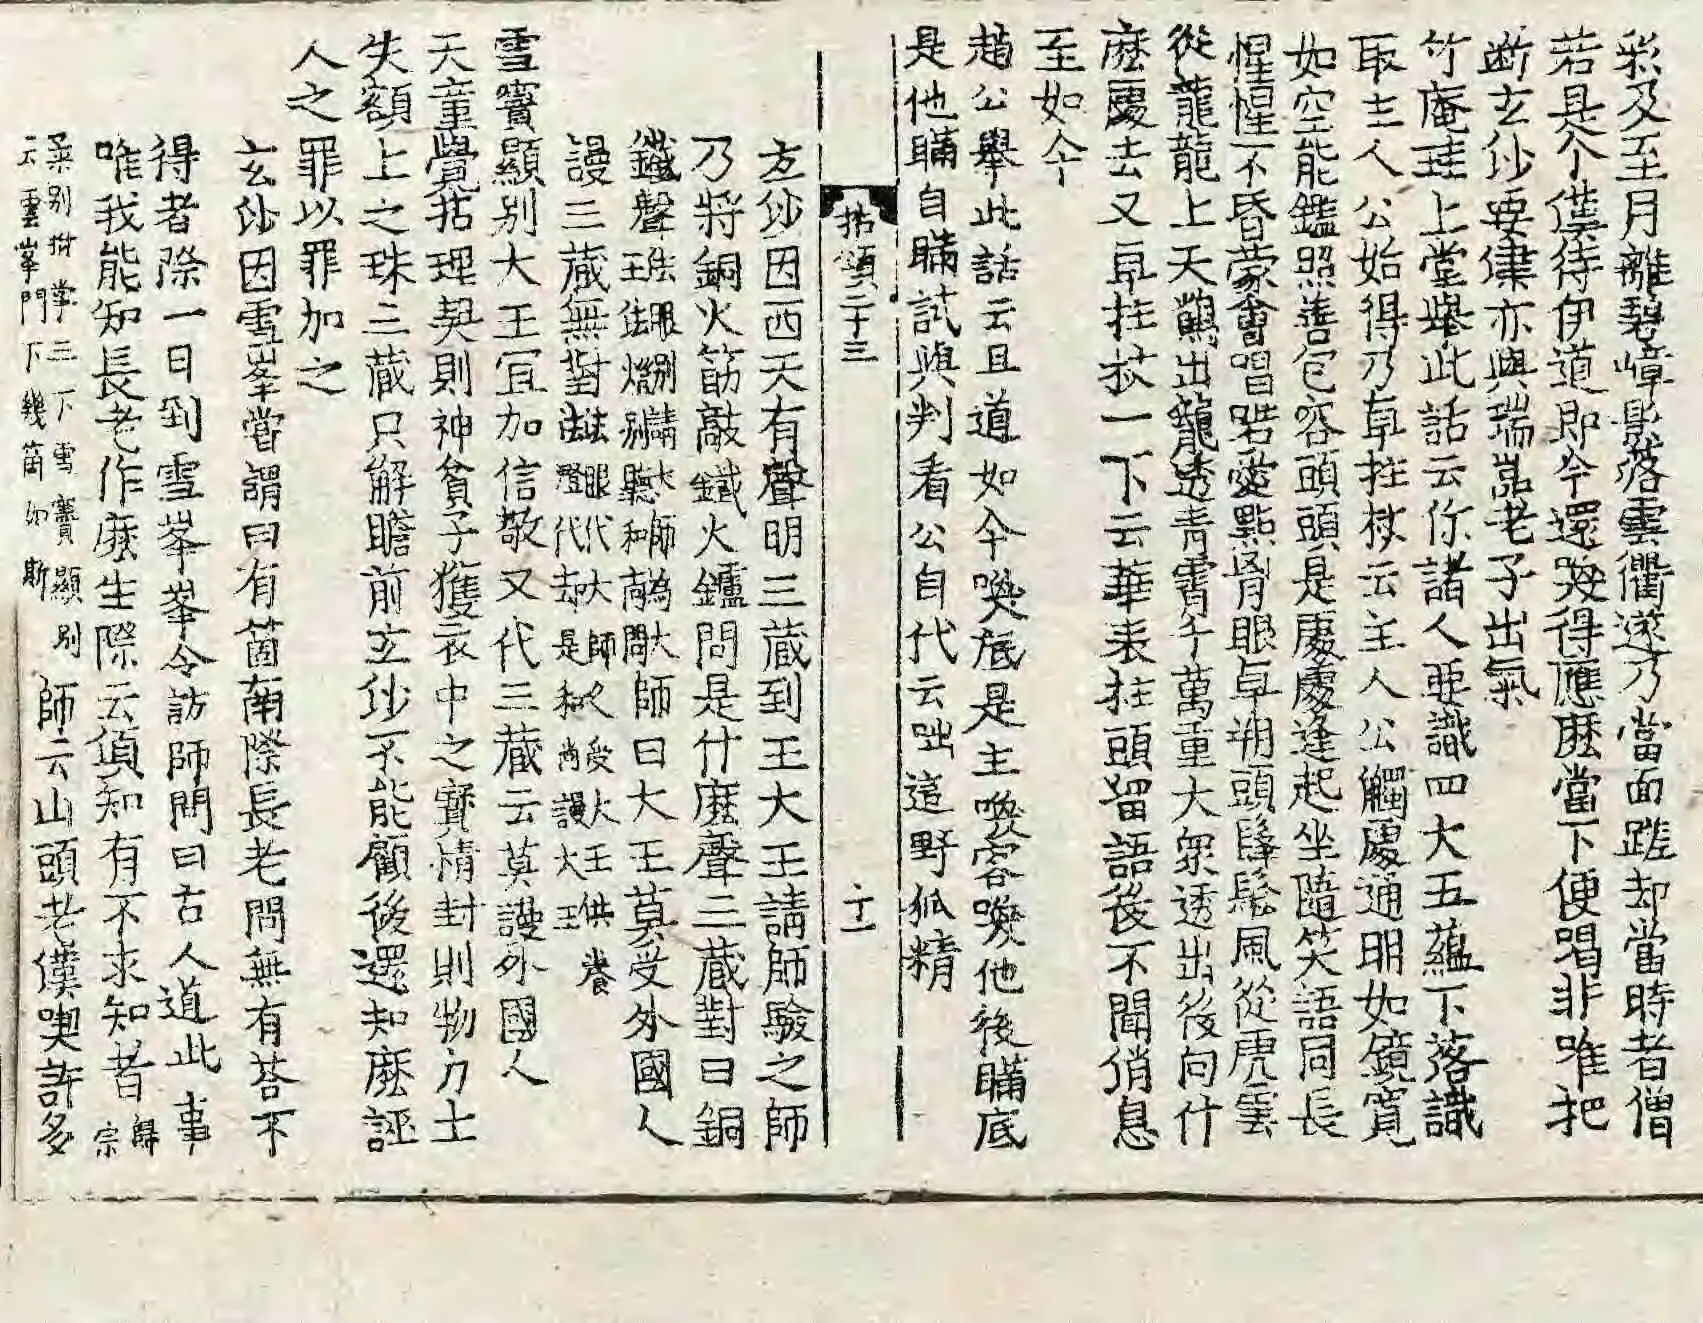 彩及至月離碧嶂影落雲衢遂乃當面蹉却當時者僧
若是个漢待伊道即今還喚得應麽當下便喝非唯把
断玄沙要津亦與瑞嵓老子出氣
竹庵珪上堂舉此話云你諸人要識四大五蘊下落識
取主人公始得乃卓拄杖云主人公觸處通明如鏡寬
如空能鑑照善包容頭頭是處處逢起坐隨笑語同長
惺惺不昏蒙會唱喏愛點胷眼卓朔頭髼鬆風從虎雲
從龍龍上天鶴出籠透青霄千萬重大衆透出後向什
麽處去又卓拄杖一下云華表柱頭留語後不聞消息
至如今
趙公舉此話云且道如今喚底是主喚客喚他後瞞底
是他瞞自瞞試與判看公自代云咄這野狐精
拈頌二十三 十一
玄沙因西天有聲明三藏到王大王請師驗之師
乃將銅火筯敲鐵火鑪問是什麽聲三藏對曰銅
鐵聲法眼別請大師爲大王法燈別聽和尚問師曰大王莫受外國人
謾三藏無對法眼代大師久受大王供養法燈代却是和尚謾大王
雪竇顯別大王冝加信敬又代三藏云莫謾外國人
天童覺拈理契則神貧子獲衣中之寶情封則物力士
失額上之珠三藏只解瞻前玄沙不能顧後還知麽誣
人之罪以罪加之
玄沙因雪峯嘗謂曰有箇南際長老問無有荅不
得者際一日到雪峯峯令訪師師問曰古人道此事
唯我能知長老作麽生際云須知有不求知者歸宗
柔別拊掌三下雪竇顯別云雲峯門下幾箇如斯師云山頭老漢喫許多